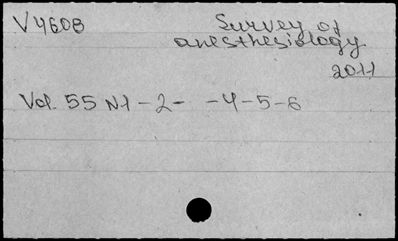 V4608
Survey of
anesthesiology
2011
Vol. 55 N1 - 2 - - 4 - 5 - 6